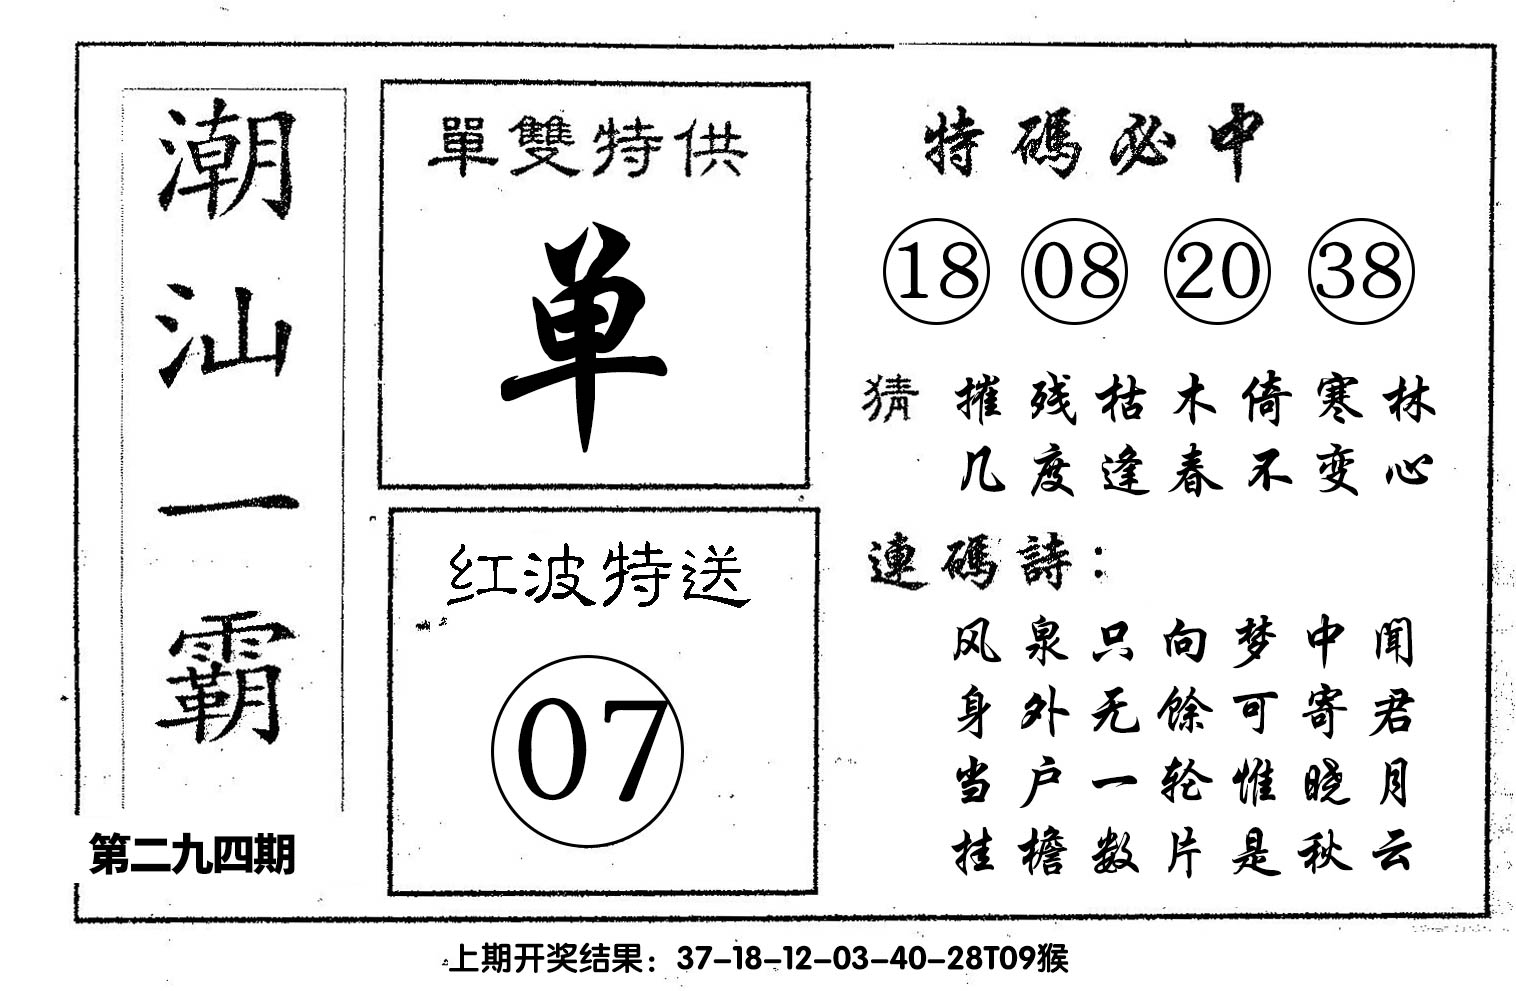 潮汕一霸
第二九四期
單雙特供
单
红波特送
07
特碼必中
18 08 20 38
猜 摧残枯木倚寒林
几度逢春不变心
連碼詩：
风泉只向梦中闻
身外无馀可寄君
当户一轮惟晓月
挂檐数片是秋云
上期开奖结果：37-18-12-03-40-28T09猴